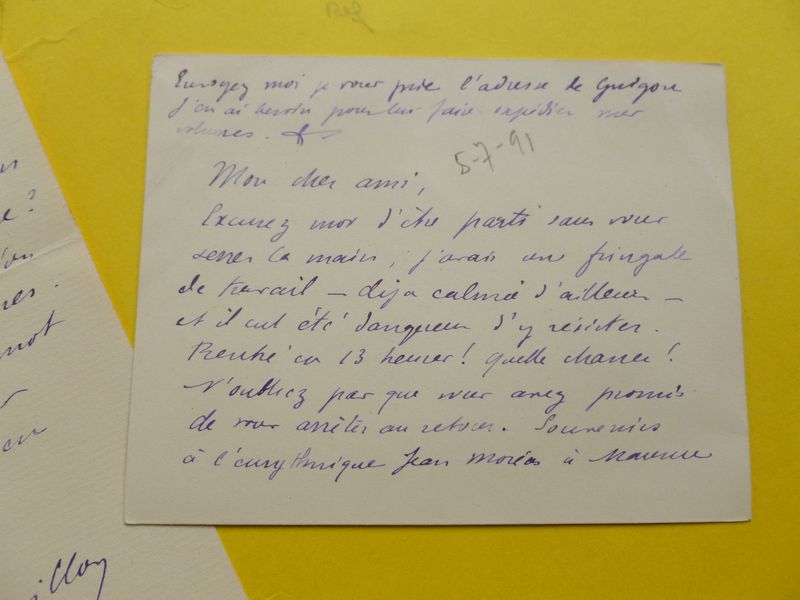 Envoyez moi je vous prie l'adresse de Guigou
j'en ai besoin pour lui faire expédier mes
volumes.
5-7-91
Mon cher ami,
Excusez moi d'être parti sans vous
serrer la main, j'avais une fringale
de travail — déja calmée d'ailleurs —
et il eut été dangereux d'y résister.
Rentré en 13 heures! quelle chance!
N'oubliez pas que vous avez promis
de vous arrêter au retour. Souvenirs
à l'eurythmique Jean Moréas à